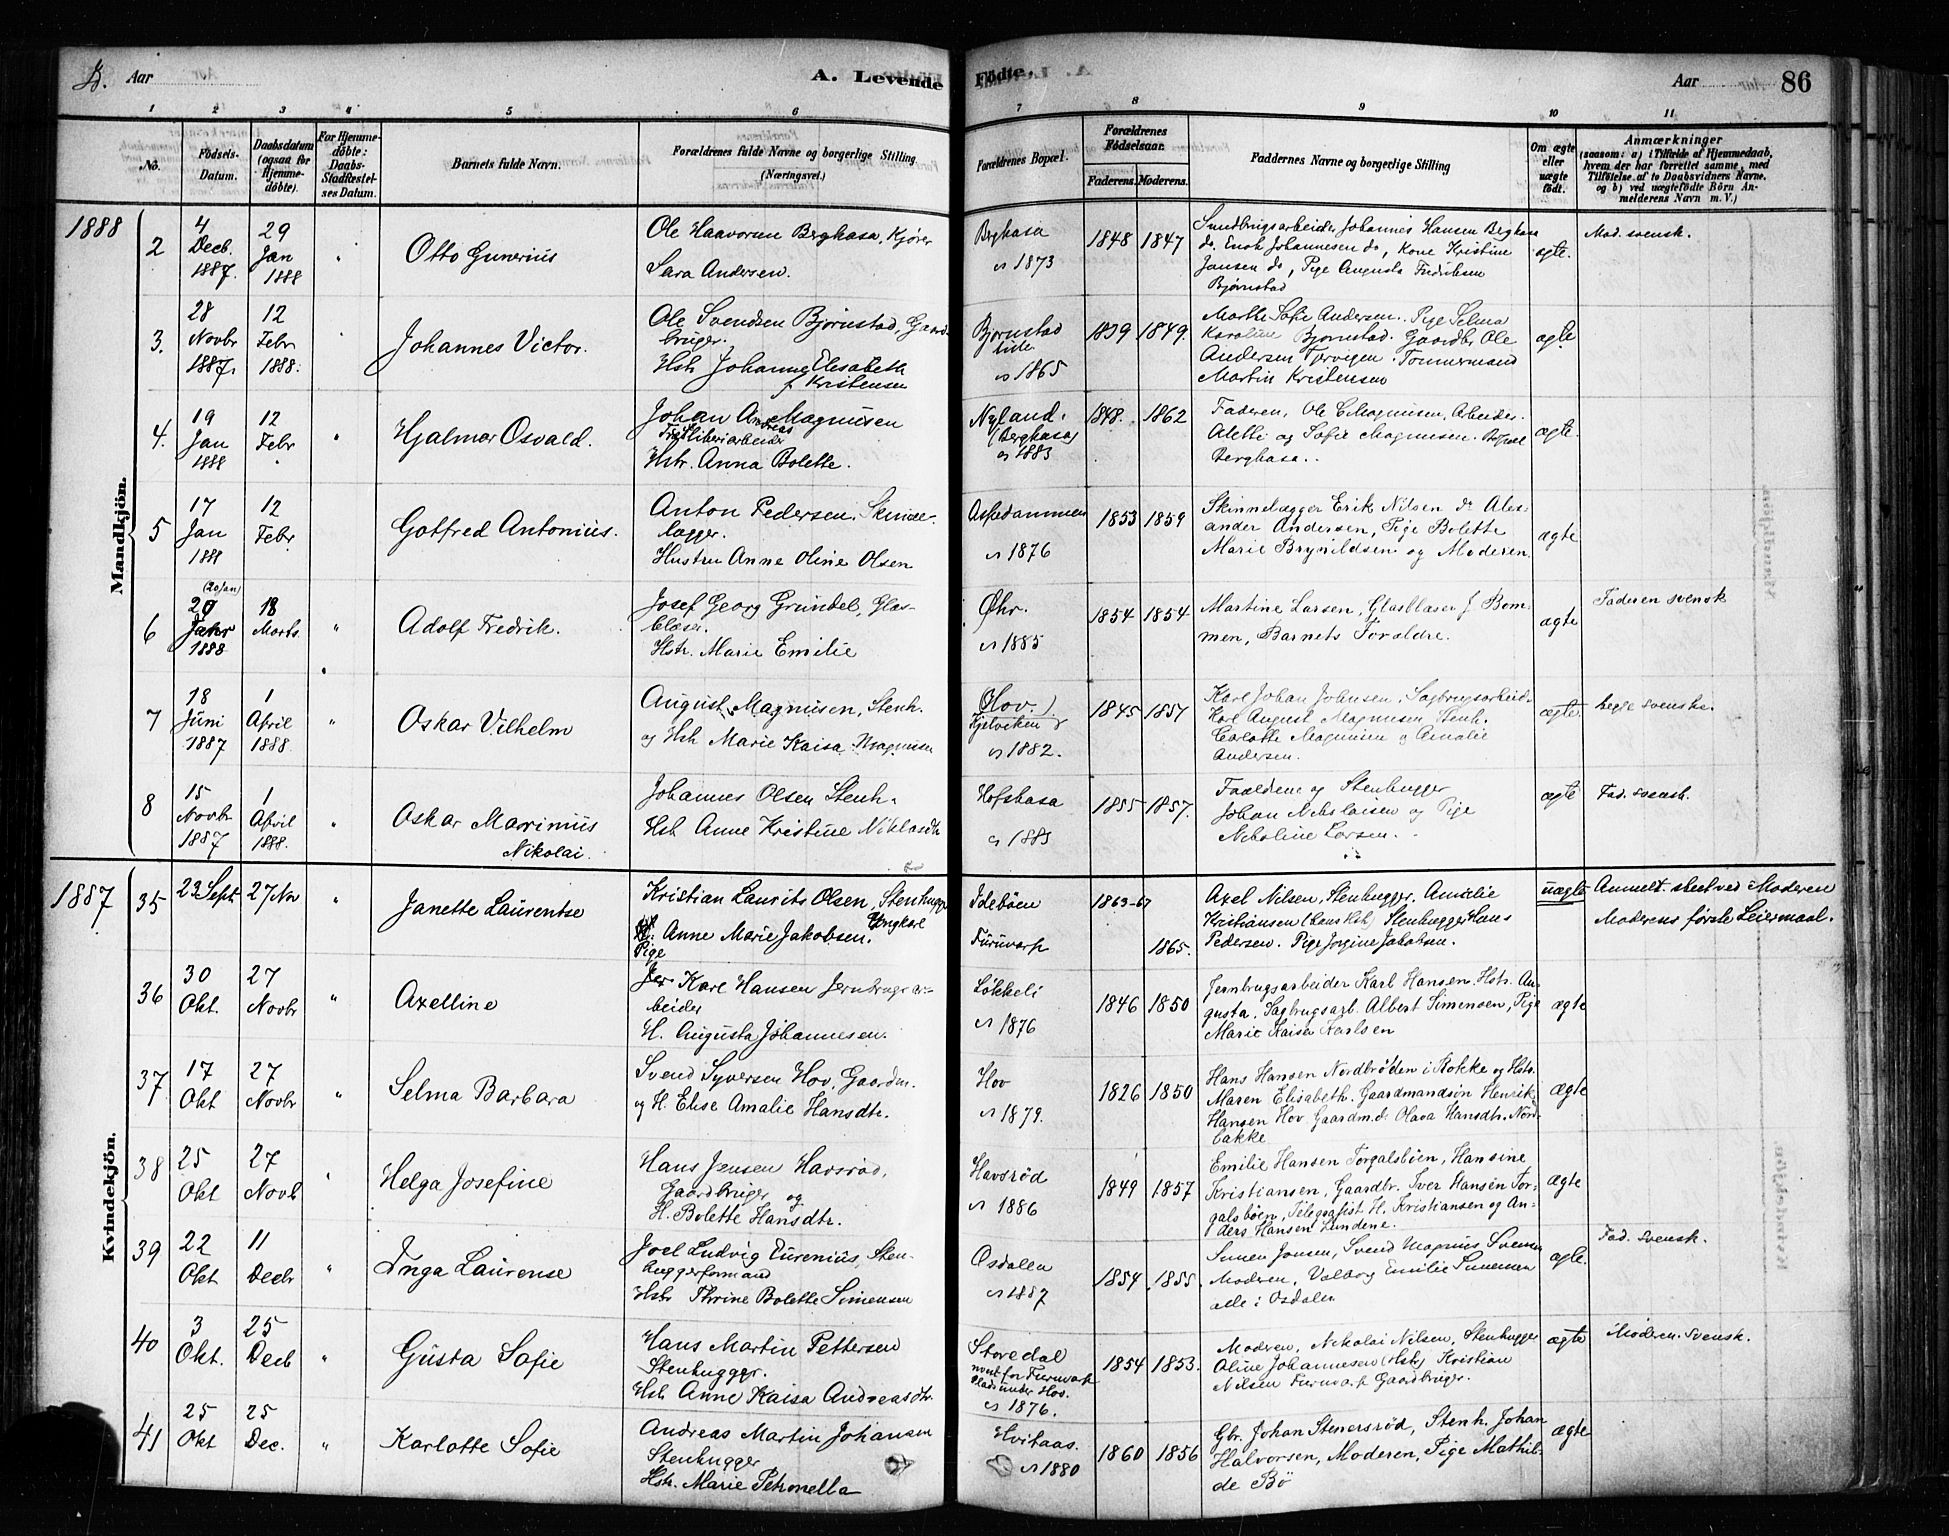 B. Aar
A. Levende
Fødte.
Aar
86
1 2 3 4 5 6 7 8 9 10 11
No.
Fødsels-Datum.
Daabsdatum (ogsaa for Hjemme-døbte).
For Hjemme-døbte: Daabs-Stadfæstel-ses Datum.
Barnets fulde Navn.
Forældrenes fulde Navne og borgerlige Stilling
(Næringsvei.)
Forældrenes Bopæl.
Forældrenes Fødselsaar.
Faderens. Moderens.
Faddernes Navne og borgerlige Stilling
Om ægte eller uægte født.
Anmærkninger
(saasom: a) i Tilfælde af Hjemmedaab,
hvem der har forrettet samme, med
Tilføielse af to Daabsvidners Navne,
og b) ved uægtefødte Børn An-
melderens Navn m. V.)
Mandkjön.
1888
2
4 Decb. 1887.
29 Jan 1888
"
Otto Gunerius
Ole Haavorsen Berghasa, Kjører
Sara Andersen.
Berghasa
1873
1848 1847
Johannes Hansen Berghasa
do. Enok Johannesen do, Kone Kristine
Jansen do, Pige Augusta Fredriksen
Bjørnstad
ægte.
Mod. svensk.
3.
28 Novbr 1887.
12 Febr 1888.
"
Johannes Victor.
Ole Svendsen Bjørnstad, Gaard-
bruger.
Hstr Johanne Elisabeth
f Kristensen
Bjørnstad
lille
1865
1839 1849.
Marthe Sofie Andersen. Pige Selma
Karoline Bjørnstad. Gaardbr Ole
Andersen Torvigen. Tømmermand
Martin Kristensen
ægte
4.
19 Jan 1888
12 Febr
"
Hjalmar Osvald.
Johan Andreas Magnusen
Hstr. Anna Bolette.
Nyland.
(Berghasa)
1883
1848. 1862
Faderen, Ole E Magnusen, Arbeider.
Alette og Sofie Magnusen.
Berghasa.
ægte.
5
17 Jan 1888
12 Febr
Gotfred Antonius.
Anton Pedersen. Skinne-
lægger.
Hustru Anne Oline Olsen
Aspedammen
1876
1853 1859
Skinnelægger Erik Nilsen do Alex-
ander Andersen, Pige Bolette
Marie Brynildsen og Moderen.
ægte
6
(20 Jan)
1888
18 Marts
"
Adolf Fredrik.
Josef Georg Gründel, Glas-
blæser.
Hstr. Marie Emilie
Øhr.
1885
1854 1854
Martine Larsen, Glasblæser J. Bom-
men, Barnets Forældre.
ægte
Faderen svensk
7
18 Juni 1887
1 April 1888.
"
Oskar Vilhelm
August Magnusen, Stenh.
og Hstr Marie Kaisa Magnusen
Hov.)
Kjelviken
1882.
1845 1857
Karl Johan Johnsen, Sagbrugsarbeid.
Karl August Magnusen Stenh.
Magnusen og Amalie
Andersen.
ægte.
begge svenske.
8
15 Novbr 1887
1 April 1888.
"
Oskar Marrinius
Nikolai.
Johannes Olsen Stenh.
Hstr Anne Kristine Niklasdtr
Hofshasa
1883
1855 1857.
og Stenhugger
Johan og Pige
Larsen.
ægte
Fad. svensk.
Kvindekjön.
1887
35
23 Sept
27 Nov
"
Janette Laurentse
Kristian Laurits Olsen, Stenhugger
Ungkarl
Anne Marie Jakobsen.
Pige
Idebøen
Furuvarp
1863-67
1865.
Axel Nilsen, Stenhugger. Amalie
Kristiansen (hans Hst) Stenhugger Hans
Pedersen. Pige Jorgine Jakobsen.
uægte
Anmeld. skeet ved Moderen
Moderens første Leiermaal.
36
30 Okt.
27 Novbr
"
Axelline
Karl Hansen Jernbrugsar-
beider
H. Augusta Johannesen.
Løkkeli
1876
1846 1850
Jernbrugsarbeider Karl Hansen. Hstr. Au-
gusta. Sagbrugsarb. Albert Simensen, Pige
Marie Kaisa Karlsen
ægte
37
17 Okt
27 Novbr
"
Selma Barbara
Svend Syversen Hov, Gaardm.
og H. Elise Amalie Hansdtr.
Hov
1879.
1826 1850
Hans Hansen Nordbrøden i Rokke og Hstr.
Maren Elisabeth. Gaardmandsøn Henrik
Hansen Hov. Gaardm.d. Olava Hansdtr. Nord-
bakke
ægte
38
25 Okt
27 Novb
"
Helga Josefine
Hans Jensen Havsrød,
Gaardbruger og
H. Bolette Hansdtr.
Havsrød
1886
1849 1857
Emilie Hansen Torgalsbøen, Hansine
Kristiansen, Gaardbr. Iver Hansen Tor-
galsbøen, Telegrafist H. Kristiansen og An-
ders Hansen Lundene.
ægte
39
22 Okt
11 Decbr
"
Inga Laurense
Joel Ludvig Eurenius, Sten-
huggerformand
Hstr Thrine Bolette Simensen
Osdalen
1887
1854 1855.
Simen Jonsen, Svend Magnus Svensen
Moderen, Valborg Emilie Simensen
alle i Osdalen
ægte.
Fad. svensk.
40
3 Okt.
25 Decb
"
Gusta Sofie
Hans Martin Pettersen
Stenhugger.
Hstr Anne Kaisa Andreasdtr.
Storedal
Plads under Hov.
1876.
1854 1853.
Moderen, Nikolai Nilsen, Stenhugger
Oline Johannesen (Hstr) Kristian
Nilsen Furuvarp Gaardbruger.
ægte
Moderen svensk.
41
25 Okt
25 Dec.
"
Karlotte Sofie
Andreas Martin Johansen
Stenhugger
Hstr. Marie Petronella
Hvitaas.
1880
1860 1856
Gbr. Johan Stenersrød, Stenh. Johan
Halvorsen, Moderen, Pige Mathil-
de Bø
ægte